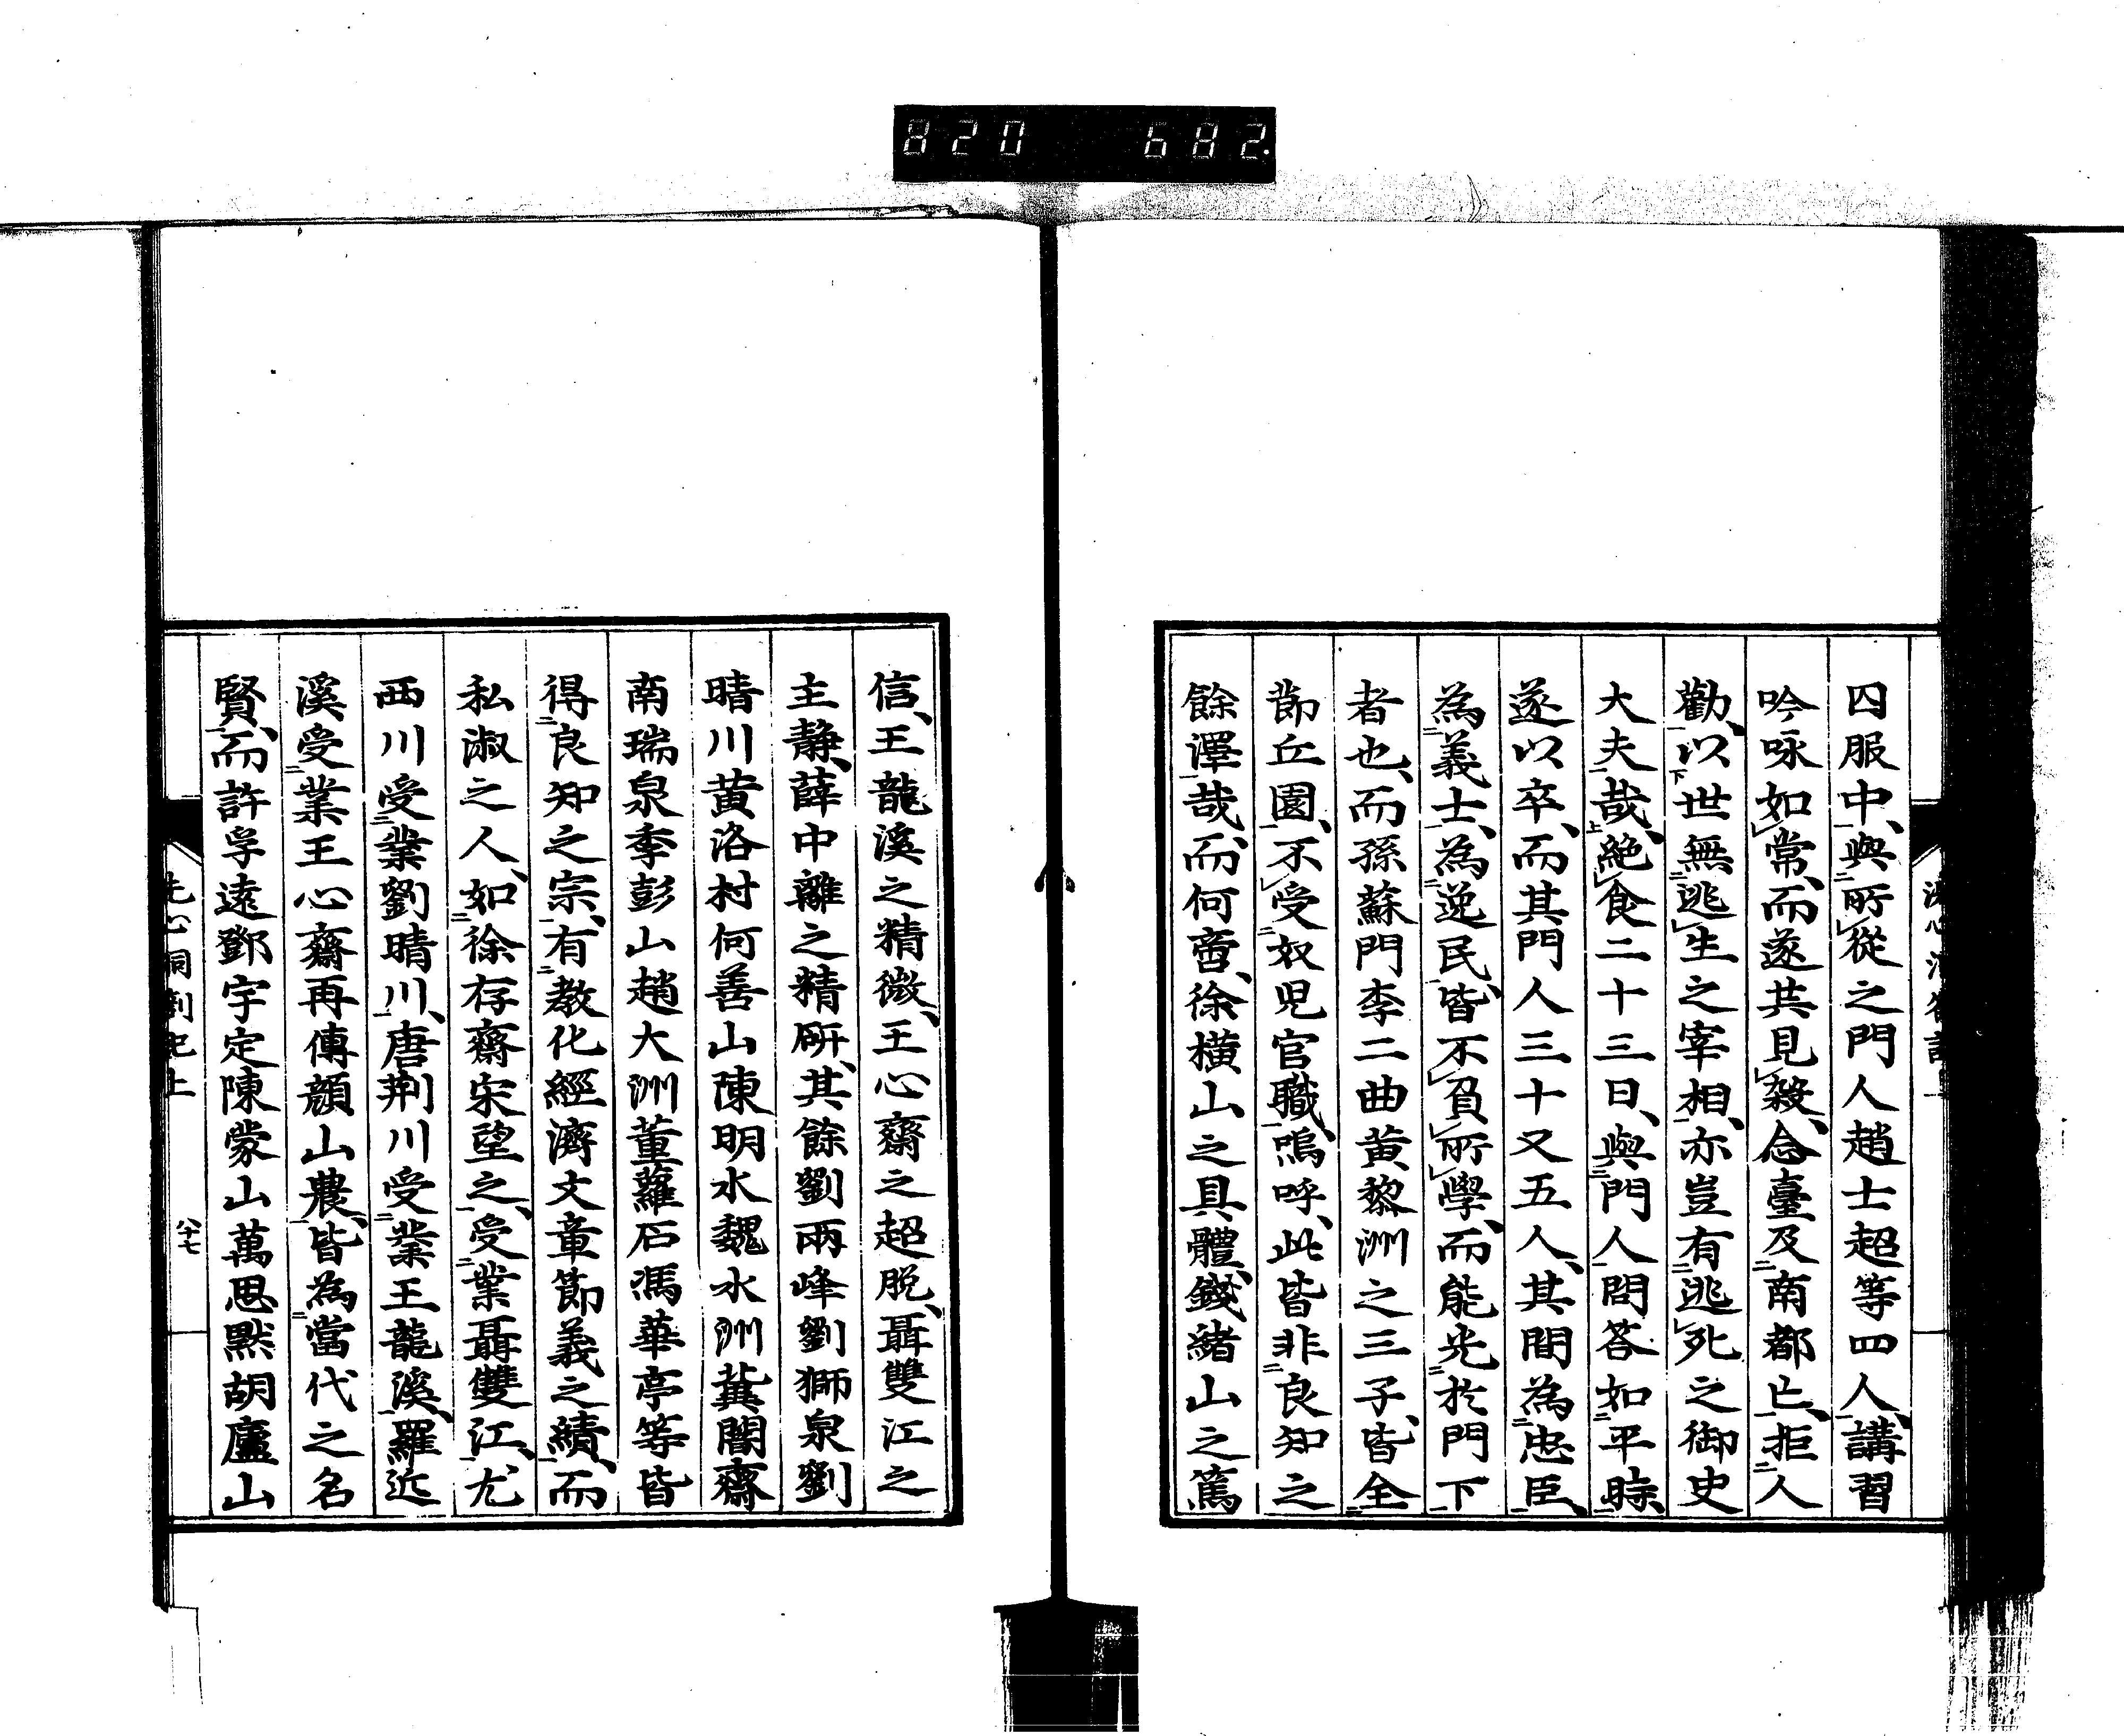 820 682.
囚服中、與所從之門人趙士超等四人、講習
吟咏如常、而遂共見殺、念臺及南都亡、拒人
勸、以世無逃生之宰相、亦豈有逃死之御史
大夫哉、絕食二十三日、與門人問答如平時、
遂以卒、而其門人三十又五人、其間為忠臣、
為義士、為逸民、皆不負所學、而能光於門下
者也、而孫蘇門李二曲黃黎洲之三子、皆全
節丘園、不受奴児官職、嗚呼、此皆非良知之
餘澤哉、而何啻、徐橫山之具體、錢緒山之篤
信、王龍溪之精微、王心齋之超脫、聶雙江之
主靜、薛中離之精研、其餘劉兩峰劉獅泉劉
晴川黃洛村何善山陳明水魏水洲冀闇齋
南瑞泉季彭山趙大洲董蘿石馮華亭等皆
得良知之宗、有教化經濟文章節義之績、而
私淑之人、如徐存齋宋望之、受業聶雙江、尤
西川受業劉晴川、唐荊川受業王龍溪、羅近
溪受業王心齋再傳顏山農、皆為當代之名
賢、而許孚遠鄧宇定陳蒙山萬思默胡廬山
洗心洞劄記上
八十七